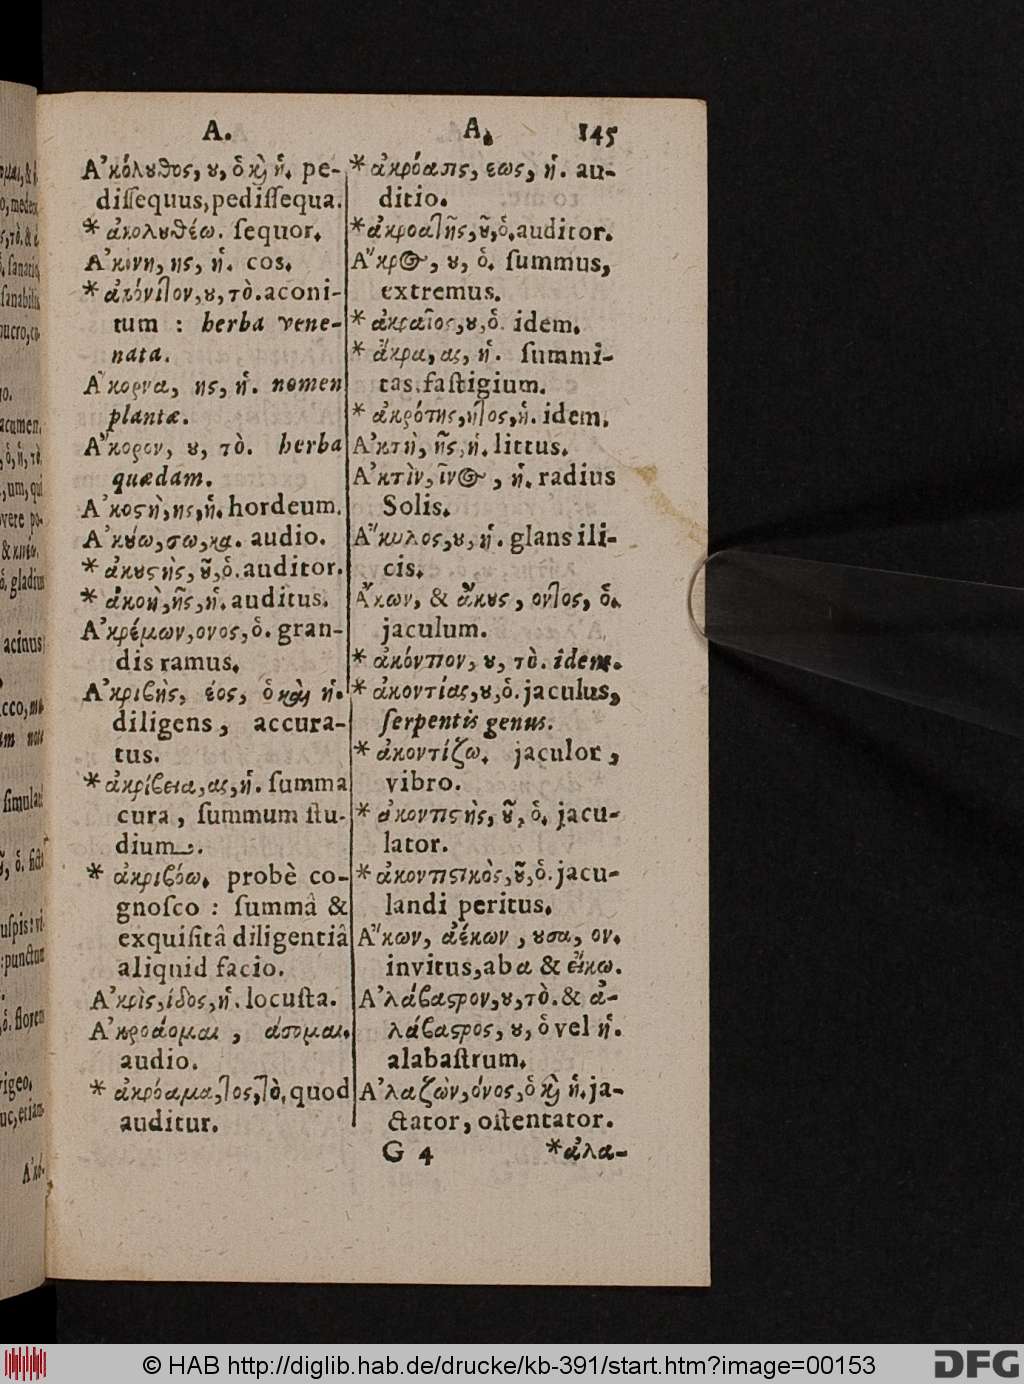 A. A. 145
Ἀκόλουθος, ου, ὁ καὶ ἡ. pe-
diſſequus, pediſſequa.
* ἀκολουθέω. ſequor.
Ἀκόνη, ης, ἡ. cos.
* ἀκόνιτον, ου, τὸ. aconi-
tum : herba vene-
nata.
Ἄκορνα, ης, ἡ. nomen
plantæ.
Ἄκορον, ου, τὸ. herba
quædam.
Ἀκοστὴ, ης, ἡ. hordeum.
Ἀκούω, σω, κα. audio.
* ἀκουστὴς, οῦ, ὁ. auditor.
* ἀκοὴ, ῆς, ἡ. auditus.
Ἀκρέμων, ονος, ὁ. gran-
dis ramus.
Ἀκριβὴς, έος, ὁ καὶ ἡ.
diligens, accura-
tus.
* ἀκρίβεια, ας, ἡ. ſumma
cura, ſummum ſtu-
dium.
* ἀκριβόω. probè co-
gnoſco : ſummâ &
exquiſitâ diligentiâ
aliquid facio.
Ἀκρὶς, ίδος, ἡ. locuſta.
Ἀκροάομαι, άσομαι.
audio.
* ἀκρόαμα, τος, τὸ. quod
auditur.
* ἀκρόασις, εως, ἡ. au-
ditio.
* ἀκροατῆς, οῦ, ὁ. auditor.
Ἄκρος, ου, ὁ. ſummus,
extremus.
* ἀκραῖος, ου, ὁ. idem.
* ἄκρα, ας, ἡ. ſummi-
tas. faſtigium.
* ἀκρότης, ητος, ἡ. idem.
Ἀκτὴ, ῆς, ἡ. littus.
Ἀκτὶν, ῖνος, ἡ. radius
Solis.
Ἄκυλος, ου, ἡ. glans ili-
cis.
Ἄκων, & ἄκους, οντος, ὁ.
jaculum.
* ἀκόντιον, ου, τὸ. idem.
* ἀκοντίας, ου, ὁ. jaculus,
ſerpentis genus.
* ἀκοντίζω. jaculor,
vibro.
* ἀκοντιστὴς, οῦ, ὁ. jacu-
lator.
* ἀκοντιστικὸς, οῦ, ὁ. jacu-
landi peritus.
Ἄκων, ἀέκων, ουσα, ον.
invitus, ab α & εἴκω.
Ἀλάβαστρον, ου, τὸ. & ἀ-
λάβαστρος, ου, ὁ vel ἡ.
alabaſtrum.
Ἀλαζὼν, όνος, ὁ καὶ ἡ. ja-
ctator, oſtentator.
G 4 * ἀλα-
© HAB http://diglib.hab.de/drucke/kb-391/start.htm?image=00153
DFG